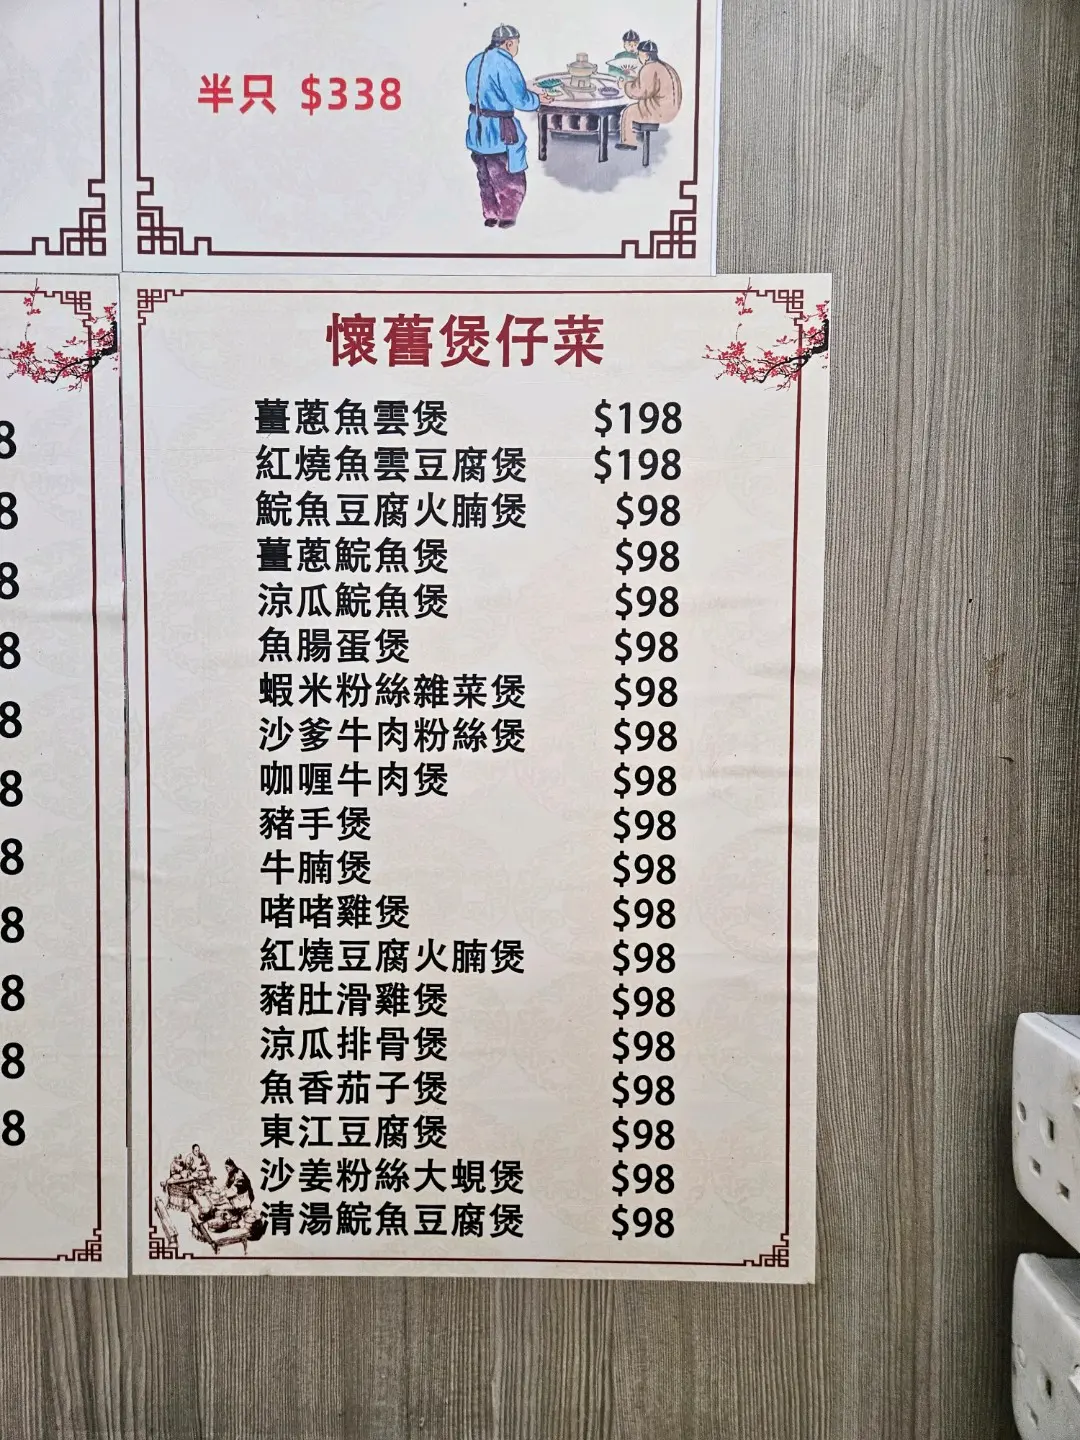 半只 $338
懷舊煲仔菜
薑蔥魚雲煲 $198
紅燒魚雲豆腐煲 $198
鯇魚豆腐火腩煲 $98
薑蔥鯇魚煲 $98
涼瓜鯇魚煲 $98
魚腸蛋煲 $98
蝦米粉絲雜菜煲 $98
沙爹牛肉粉絲煲 $98
咖喱牛肉煲 $98
豬手煲 $98
牛腩煲 $98
啫啫雞煲 $98
紅燒豆腐火腩煲 $98
豬肚滑雞煲 $98
涼瓜排骨煲 $98
魚香茄子煲 $98
東江豆腐煲 $98
沙姜粉絲大蜆煲 $98
清湯鯇魚豆腐煲 $98
8
8
8
8
8
8
8
8
8
8
8